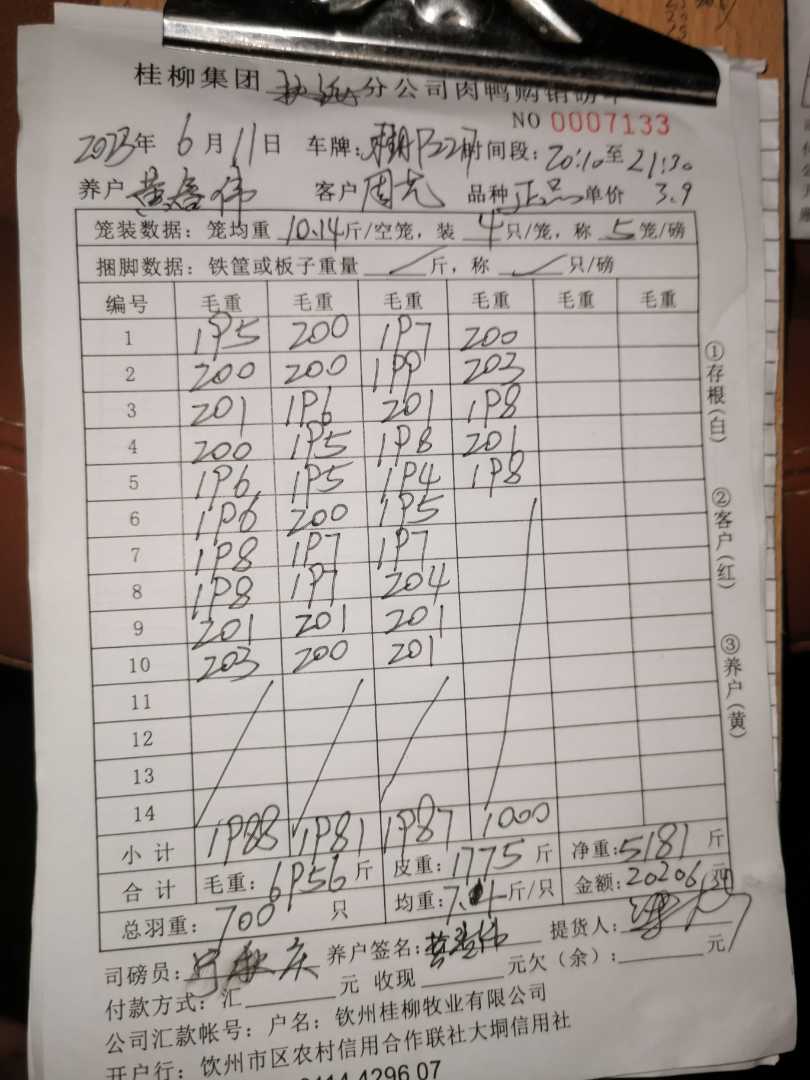 桂柳集团 分公司肉鸭购销磅单
NO 0007133
2023年 6月 11日 车牌: 时间段: 20:10至21:30
养户 黄 伟 客户 周 品种 正品 单价 3.9
笼装数据: 笼均重 10.14斤/空笼, 装 4只/笼, 称 5笼/磅
捆脚数据: 铁筐或板子重量 斤, 称 只/磅
编号 毛重 毛重 毛重 毛重 毛重 毛重
1 195 200 197 200
2 200 200 199 203
3 201 196 201 198
4 200 195 198 201
5 196 195 194 198
6 196 200 195
7 198 197 197
8 198 197 204
9 201 201 201
10 203 200 201
11
12
13
14
小计 1988 1981 1987 1000
合计 毛重: 6956斤 皮重: 1775斤 净重: 5181斤
总羽重: 700 只 均重: 7.4斤/只 金额: 20206元
司磅员: 养户签名: 黄 伟 提货人:
付款方式: 汇 元 收现 元欠(余): 元
公司汇款帐号: 户名: 钦州桂柳牧业有限公司
开户行: 饮州市区农村信用合作联社大垌信用社
4296 07
①存根(白)
②客户(红)
③养户(黄)